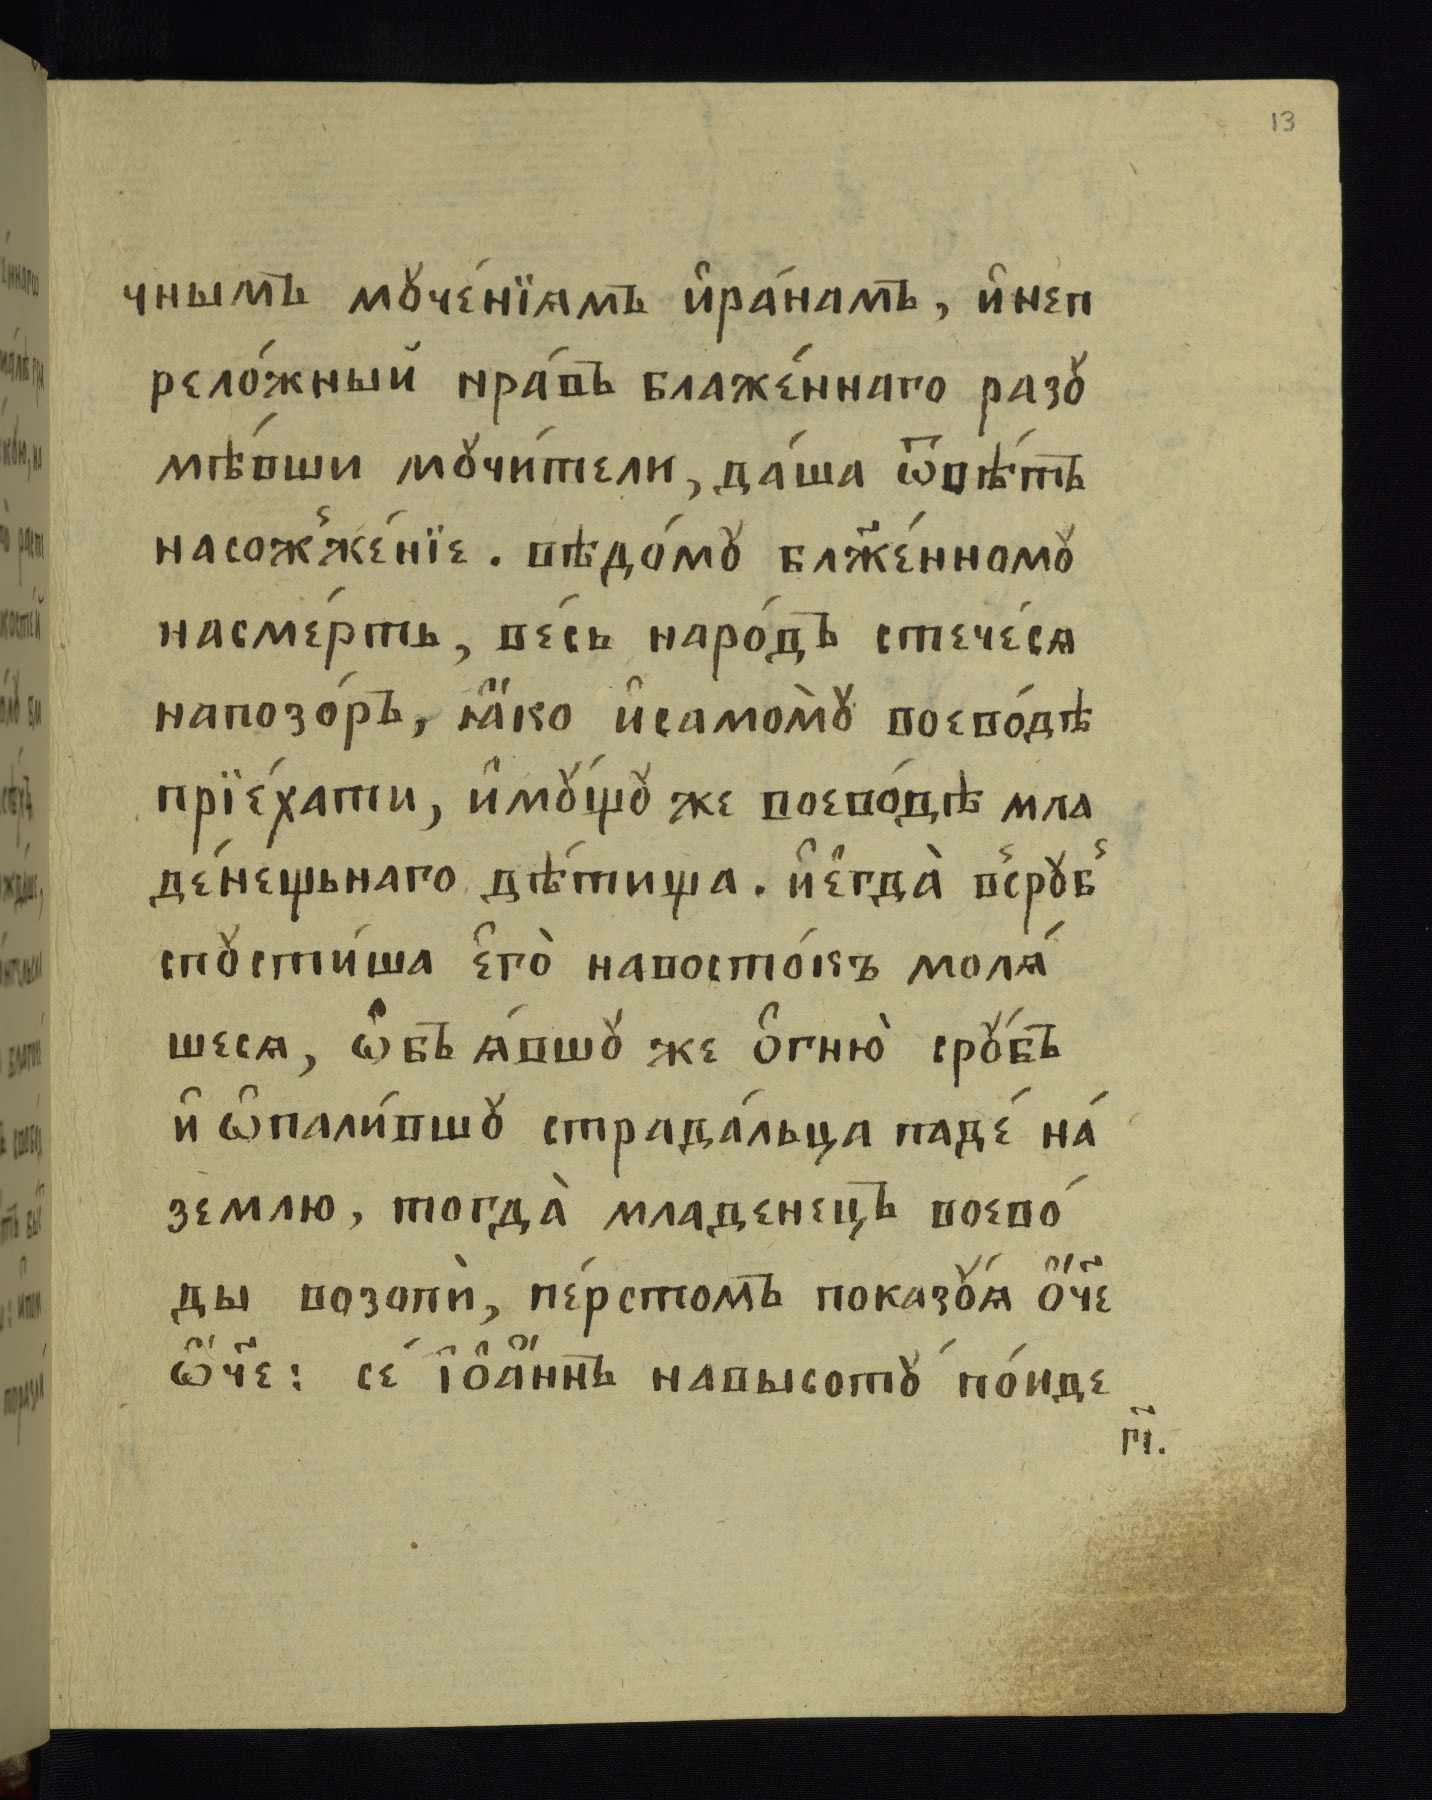 13
чнымъ мꙋче́нїѧмъ и҆ра́намъ, и҆неп
рело́жный нра́въ блаже́ннаго разꙋ
мѣ́вши мꙋчи́тели, да́ша ѿвѣ́тъ
насож̾же́нїе. вѣдо́мꙋ бл҃же́нномꙋ
насме́рть, ве́сь наро́дъ стече́сѧ
напозо́ръ, ꙗ҆́ко и҆самомꙋ̀ воево́дѣ
прїе́хати, и҆мꙋ́щꙋ же воево́дѣ мла
де́нещьнаго дѣ́тища. и҆є҆гда̀ в̾срꙋб̾
спꙋсти́ша є҆го̀ навосто́къ молѧ́
шесѧ, ѡ҆бъѧ́вшꙋ же ѻ҆гню̀ срꙋ́бъ
и҆ ѡ҆пали́вшꙋ страда́льца паде́ на́
землю, тогда̀ младенецъ воево́
ды возопѝ, пе́рстомъ показꙋ́ѧ ѻ҆́ч҃е
ѡ҆́ч҃е: се́ і҆ѻ҆а҆́ннъ навысотꙋ́ по́иде
г҃і.